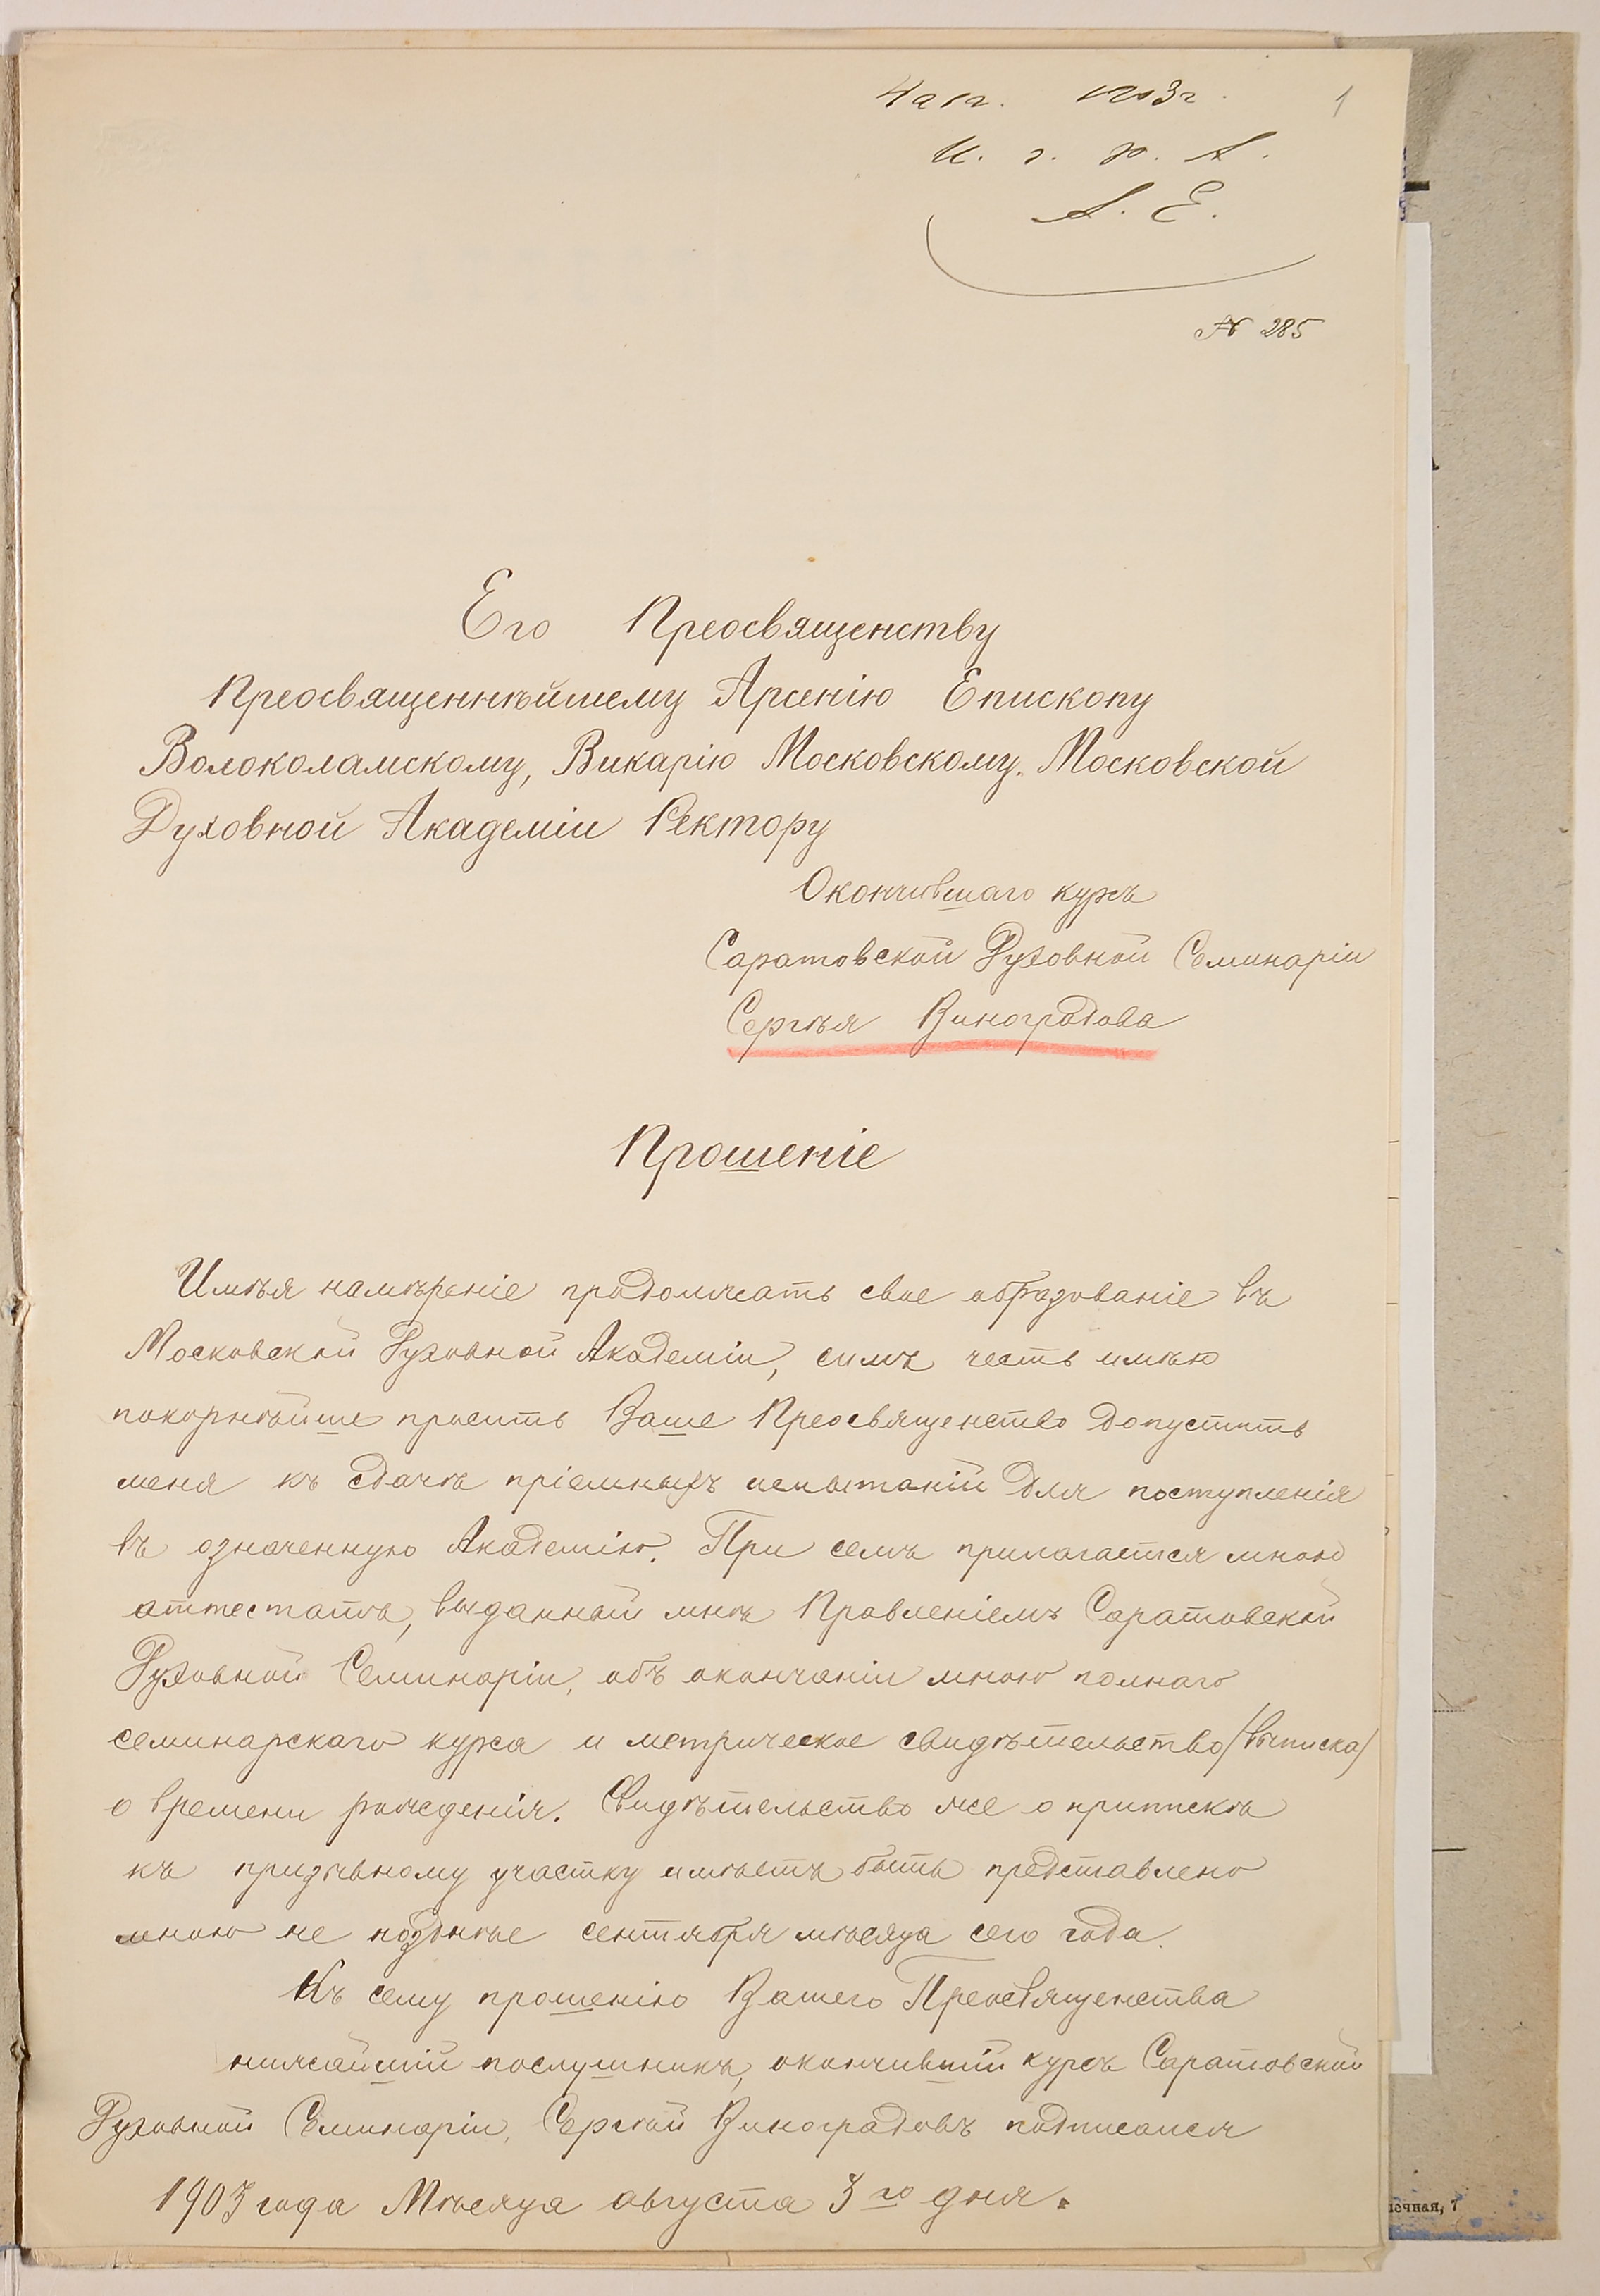 4 авг. 1903 г.
1
А. Е.
№ 285
Его Преосвященству
Преосвященнѣйшему Арсенію Епископу
Волоколамскому, Викарію Московскому. Московской
Духовной Академіи Ректору
Окончившаго курсъ
Саратовской Духовной Семинаріи
Сергѣя Виноградова
Прошеніе
Имѣя намѣреніе продолжать свое образованіе въ
Московской Духовной Академіи, симъ честь имѣю
покорнѣйше просить Ваше Преосвященство допустить
меня къ сдачѣ пріемныхъ испытаній для поступленія
въ означенную Академію. При семъ прилагается мною
аттестатъ, выданный мнѣ Правленіемъ Саратовской
Духовной Семинаріи, объ окончаніи мною полнаго
семинарскаго курса и метрическое свидѣтельство /выписка/
о времени рожденія. Свидѣтельство же о припискѣ
къ призывному участку имѣетъ быть представлено
мною не позднѣе сентября мѣсяца сего года.
Къ сему прошенію Вашего Преосвященства
нижайшій послушникъ, окончившій курсъ Саратовской
Духовной Семинаріи, Сергѣй Виноградовъ подписался
1903 года Мѣсяца августа 3го дня.
ечная, 7